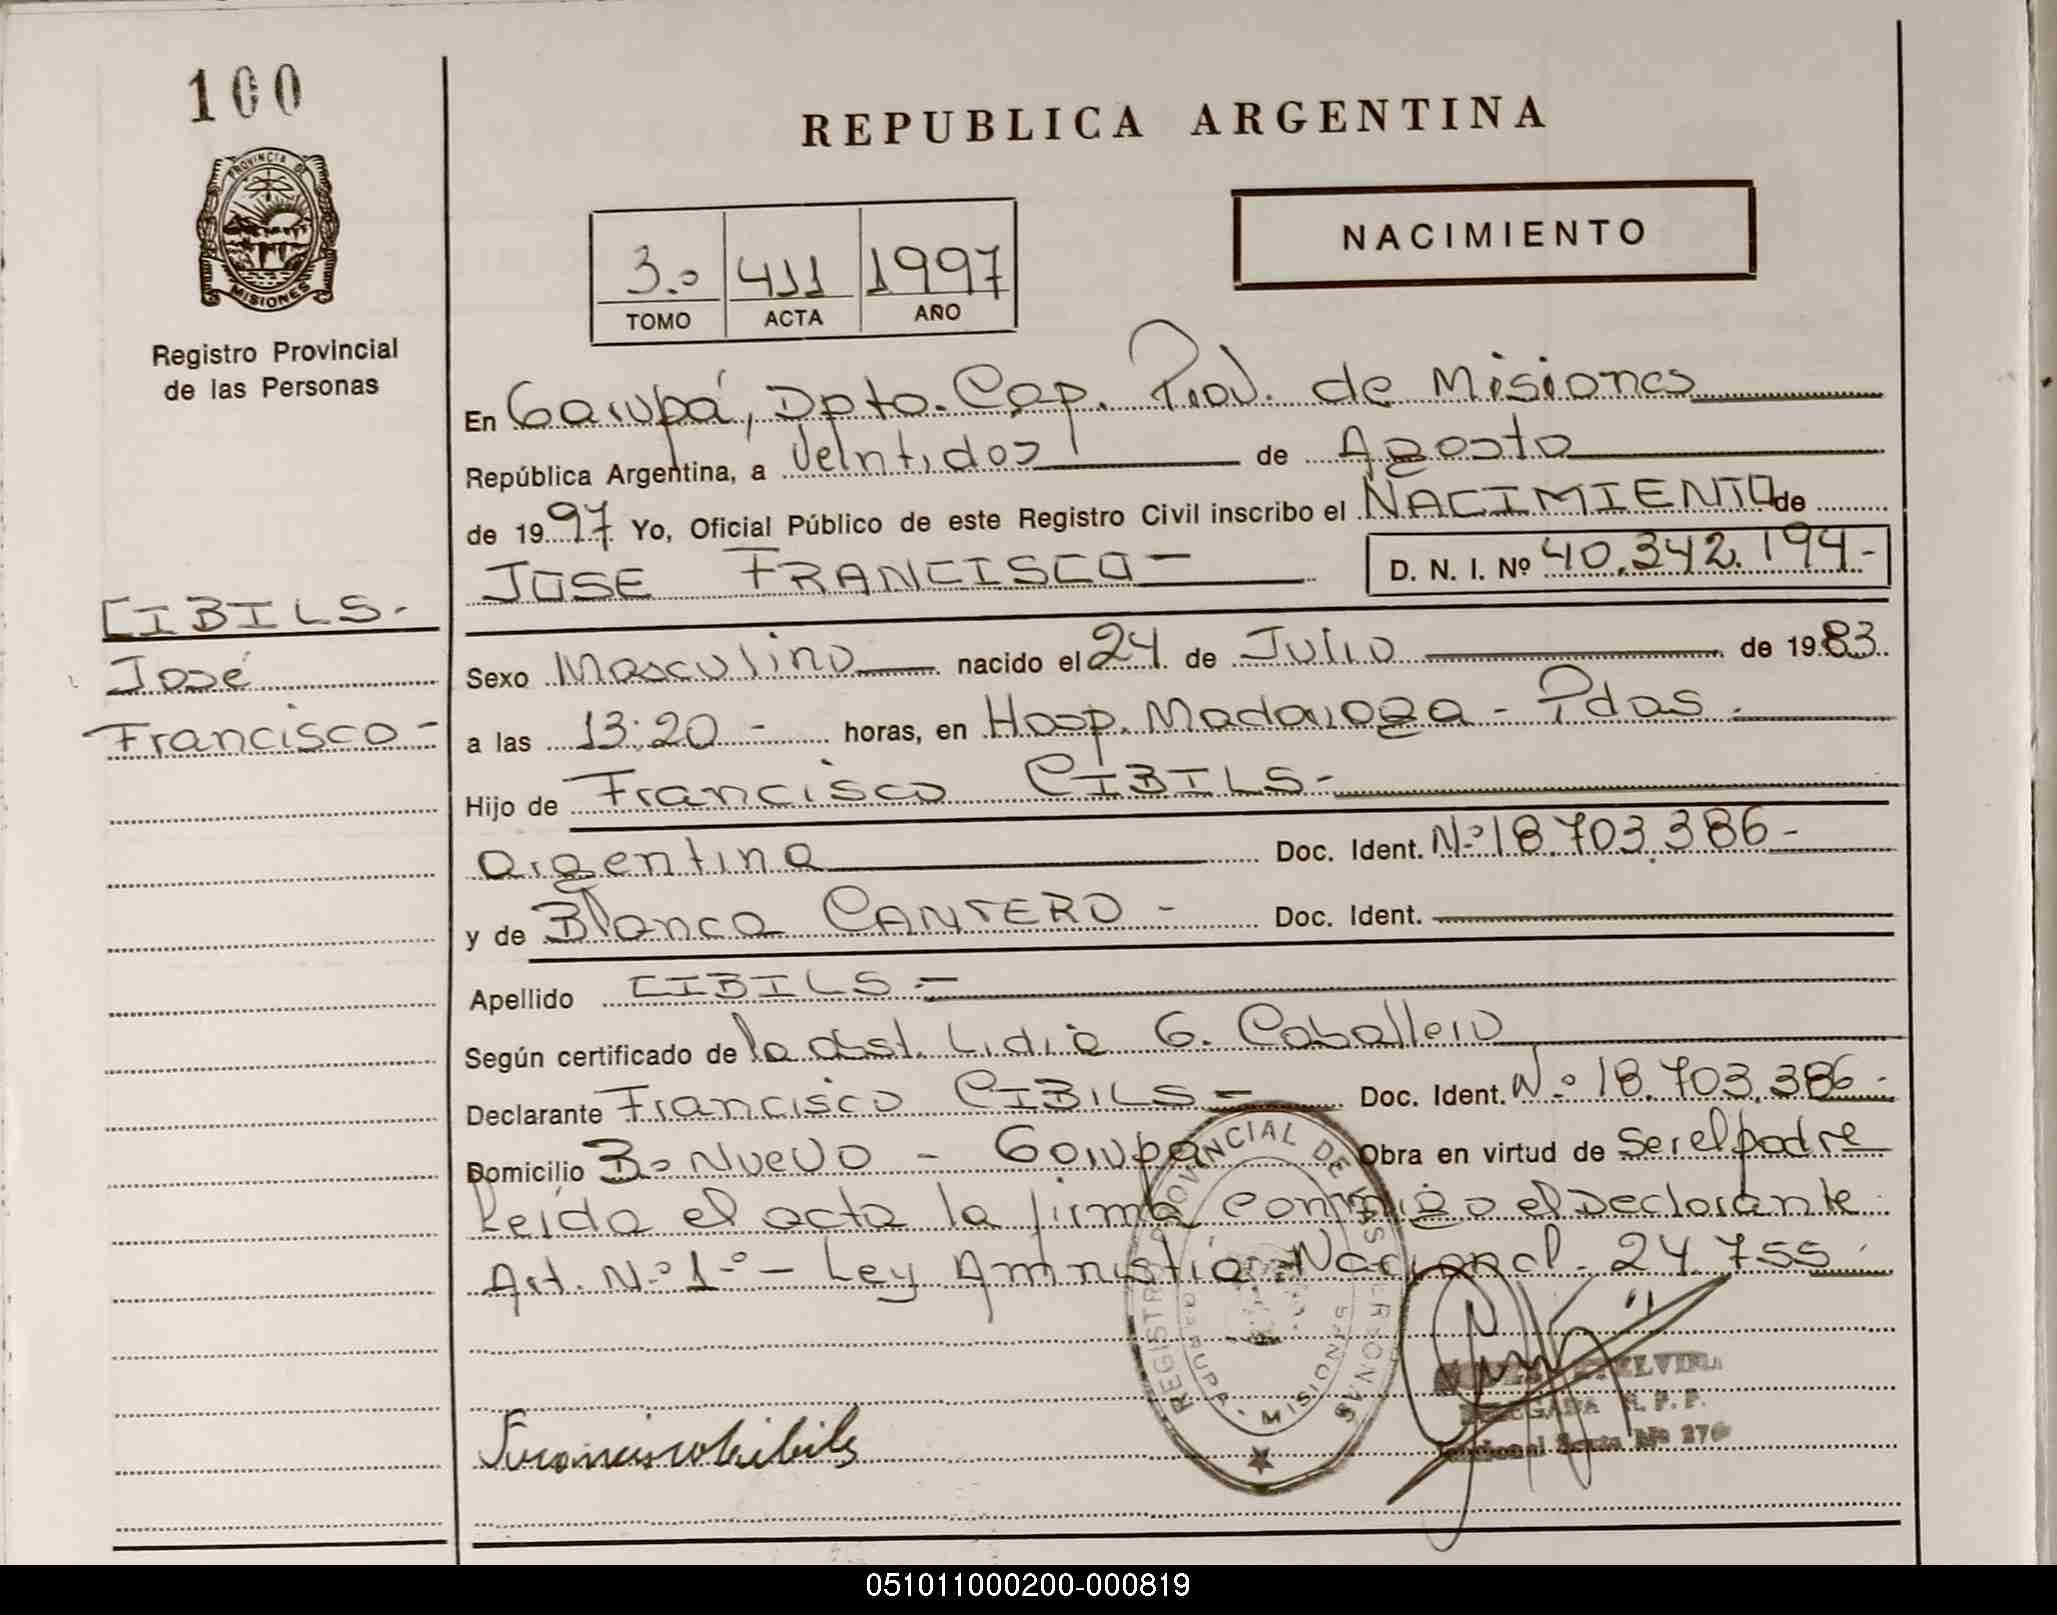 100
PROVINCIA DE
MISIONES
Registro Provincial
de las Personas
REPUBLICA ARGENTINA
NACIMIENTO
3.º 411 1997
TOMO ACTA AÑO
En Garupá, Dpto. Cap. Prov. de Misiones
República Argentina, a Veintidos de Agosto
de 1997 Yo, Oficial Público de este Registro Civil inscribo el NACIMIENTO de
JOSE FRANCISCO - D. N. I. Nº 40.342.194-
CIBILS-
José
Francisco-
Sexo Masculino nacido el 24 de Julio de 1983
a las 13:20 - horas, en Hosp. Madariaga - Pdas.
Hijo de Francisco CIBILS-
argentina Doc. Ident. Nº 18.703.386-
y de Blanca CANTERO - Doc. Ident.
Apellido CIBILS=
Según certificado de la obst. Lidia G. Caballero
Declarante Francisco CIBILS- Doc. Ident. Nº 18.703.386-
Domicilio Bº Nuevo - Garupá Obra en virtud de Ser el padre
Leída el acta la firma conmigo el Declarante.
Art. Nº 1º - Ley Amnistía Nacional. 24.755.
REGISTRO PROVINCIAL DE LAS PERSONAS
GARUPA - MISIONES
ELVIRA
DELEGADA R. P. P.
Francisco Cibils
051011000200-000819